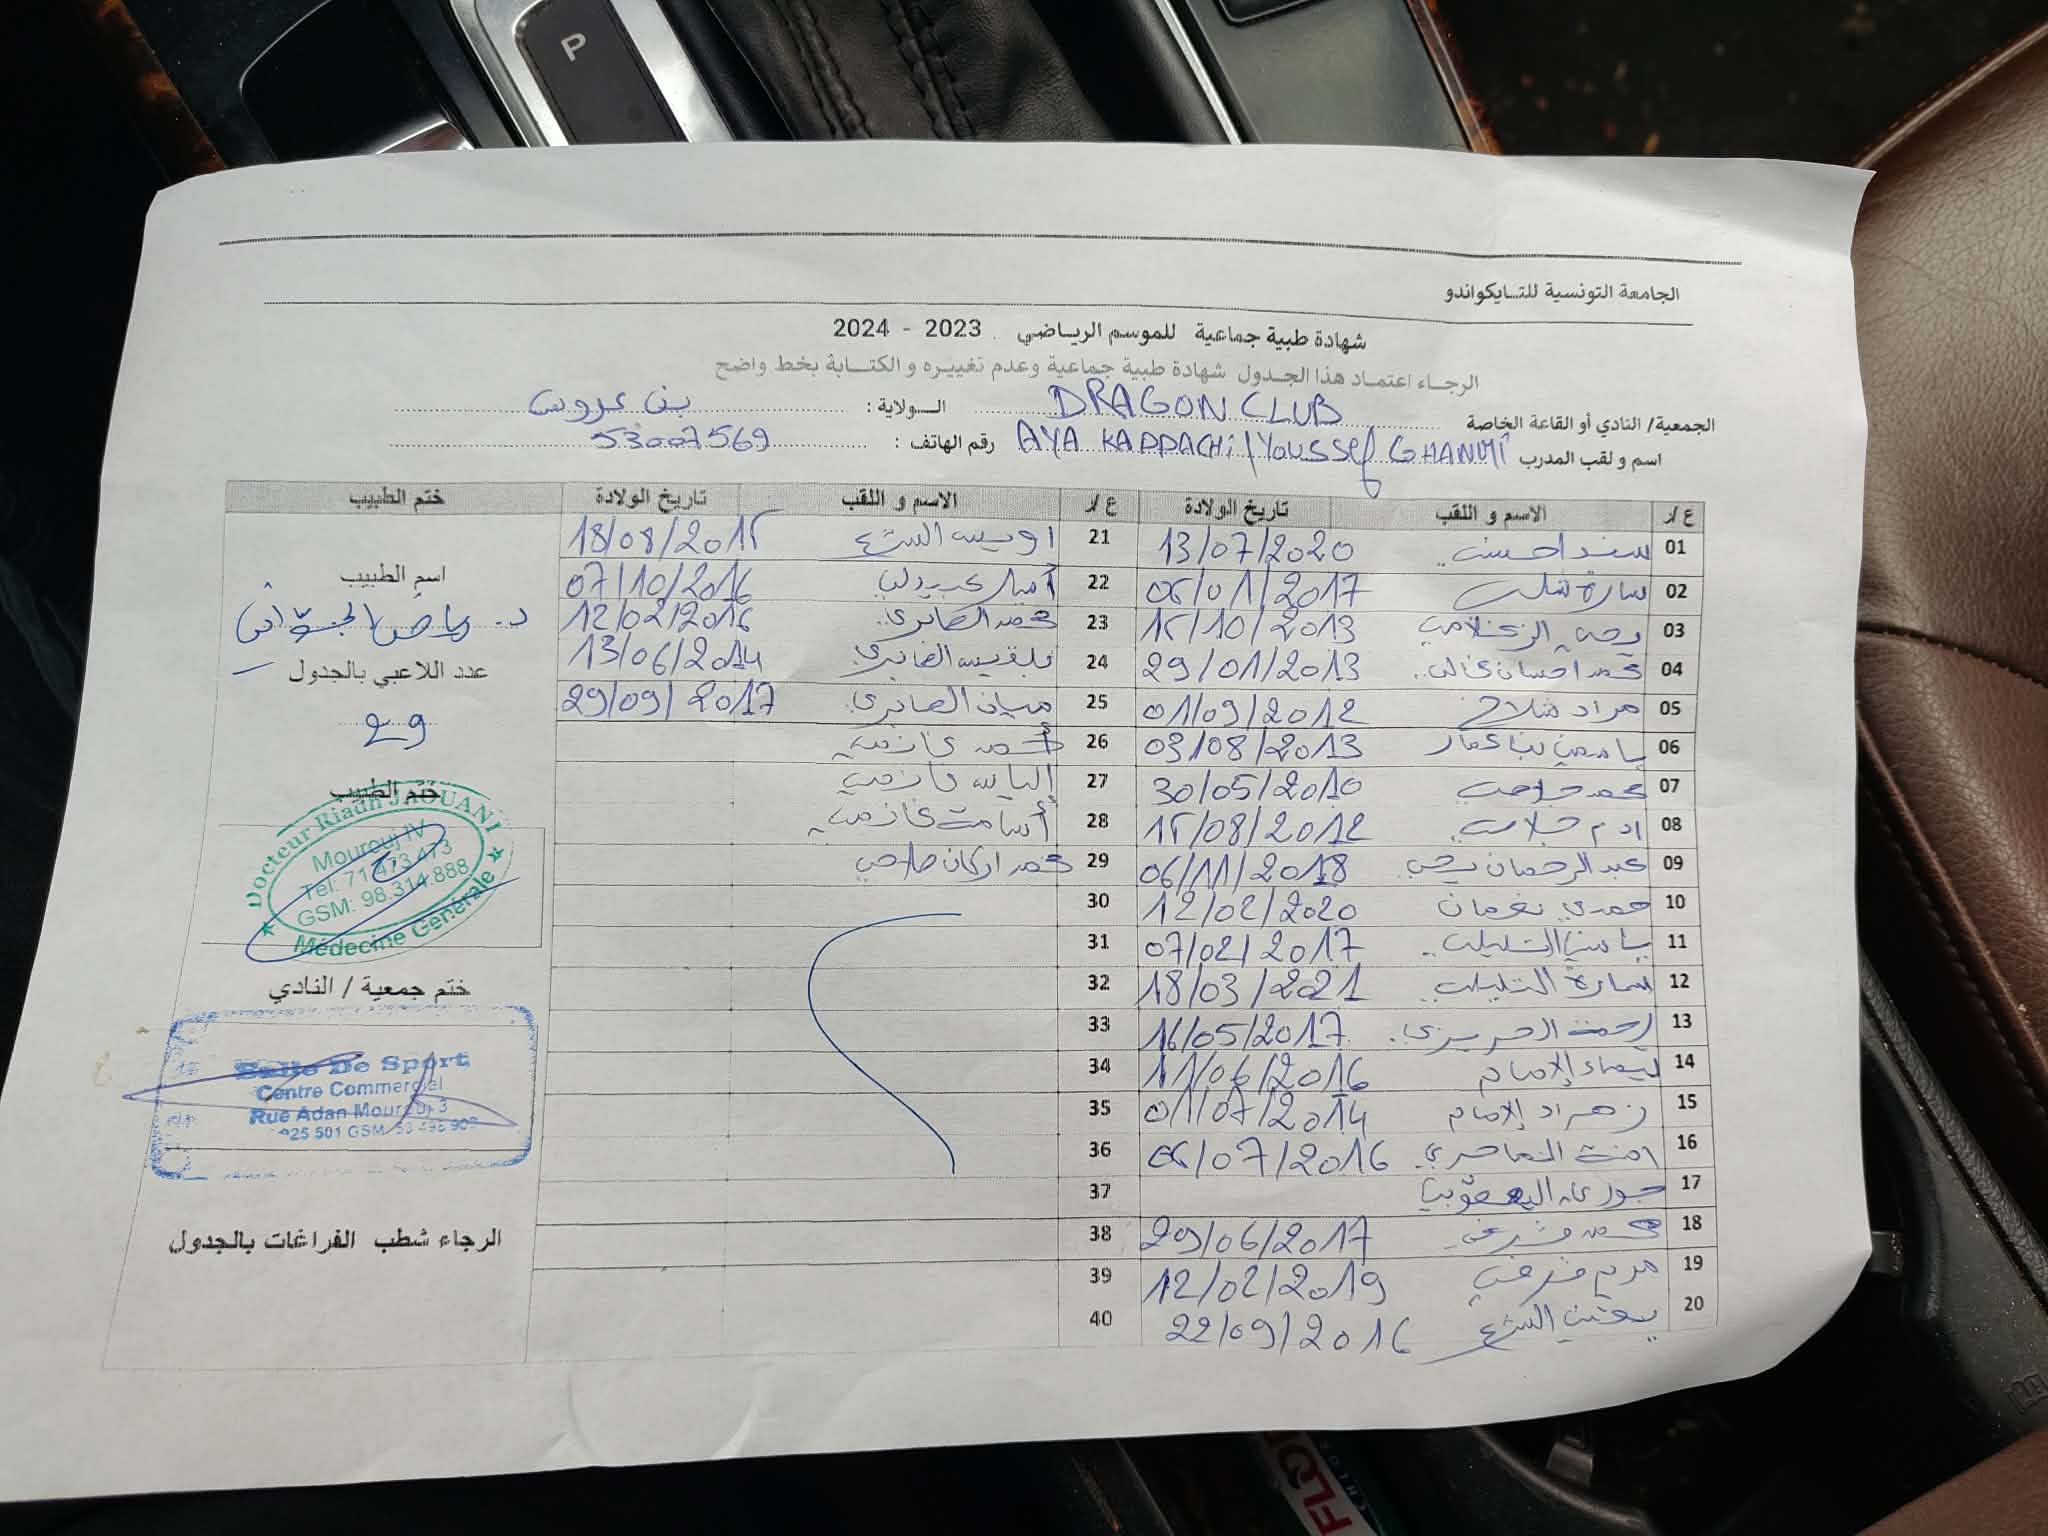 P
الجامعة التونسية للتايكواندو
شهادة طبية جماعية للموسم الرياضي 2023 - 2024
الرجاء اعتماد هذا الجدول شهادة طبية جماعية وعدم تغييره و الكتابة بخط واضح
الجمعية/ النادي أو القاعة الخاصة DRAGON CLUB الولاية : بن عروس
اسم و لقب المدرب AYA KADDACHi / Youssef GHANMI رقم الهاتف : 53007569
ع/ر الاسم و اللقب تاريخ الولادة ع/ر الاسم و اللقب تاريخ الولادة ختم الطبيب
01 سند 13/07/2020
02 سارة 06/01/2017
03 15/10/2013
04 محمد احسان 29/01/2013
05 مراد فلاح 01/09/2012
06 ياسمين بنعمار 03/08/2013
07 محمد 30/05/2010
08 ادم 15/08/2012
09 عبد الرحمان يحي 06/11/2018
10 حمدي نعمان 12/02/2020
11 ياسين التليلي 07/02/2017
12 سارة التليلي 18/03/2021
13 رحمة الحريزي 16/05/2017
14 الإمام 11/06/2016
15 الإمام 01/07/2014
16 امنة 06/07/2016
17 اليعقوبي
18 محمد 29/06/2017
19 مريم 12/02/2019
20 يقين 22/09/2016
21 اويس 18/08/2015
22 07/10/2016
23 محمد الصابري 12/02/2016
24 بلقيس الصابري 13/06/2014
25 الصابري 29/09/2017
26 أحمد
27 إلياس
28 أسامة
29 محمد اركان
30
31
32
33
34
35
36
37
38
39
40
اسم الطبيب
د. رياض الجواني
عدد اللاعبي بالجدول
29
ختم الطبيب
Docteur Riadh JAOUANI
Mourouj IV
Tel: 71.473.473
GSM: 98.314.888
Médecine Générale
ختم جمعية / النادي
Salle De Sport
Centre Commercial
Rue Adan Mourouj 3
الرجاء شطب الفراغات بالجدول